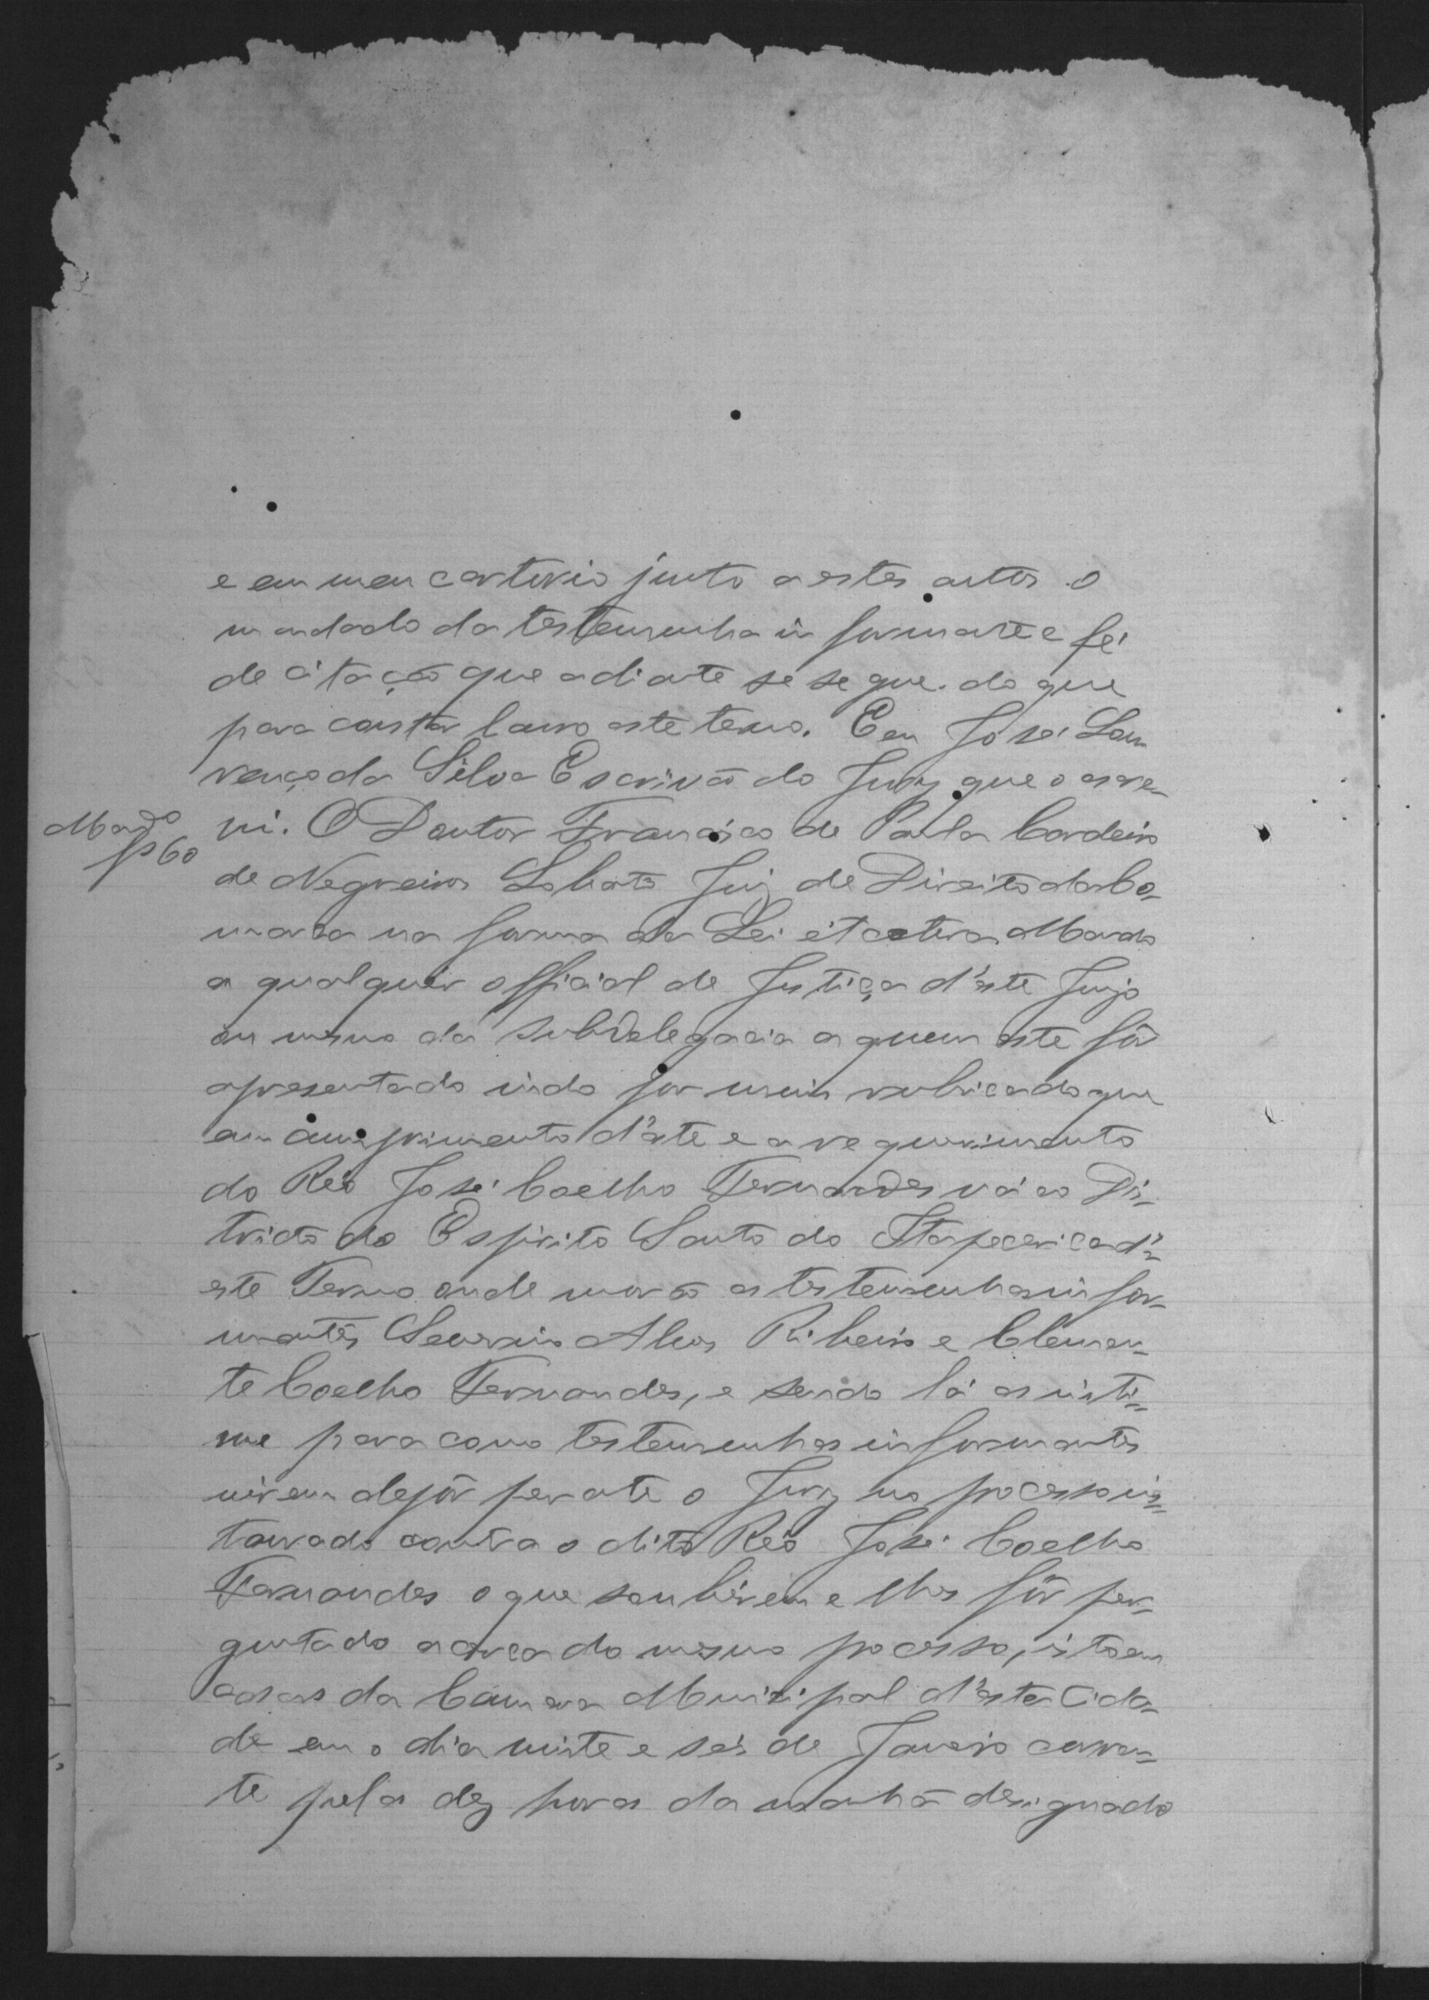 e em meu cartorio junto a estes autos o
mandado da testemunha informante e fé
de citação que adiante se segue. do que
para constar lavro este termo. Eeu José Lou
renço da Silva Escrivão do Jury que o escre=
vi. O Doutor Francisco de Paula Cordeiro
Mando
fs 60
de Negreiros Lobato Juiz de Direito da Co=
marca na forma da Lei etcetera Mando
a qualquer official de Justiça d'este Juizo
ou mesmo da Subdelegacia a quem este fôr
apresentado indo por mim rubricado que
em cumprimento d'este e a requerimento
do Réo José Coelho Fernandes vá ao Dis-
tricto do Espirito Santo do Itapecerica d'=
este Termo onde morão as testemunhas infor=
mantes Severino Alves Ribeiro e Clemen=
te Coelho Fernandes, e sendo lá as inti=
me para como testemunhas informantes
virem depôr perante o Jury no processo ins=
taurado contra o dito Réo José Coelho
Fernandes o que souberem e lhes fôr per=
guntado acerca do mesmo processo, isto em
casas da Camara Municipal d'esta Cida=
de em o dia vinte e seis de Janeiro corren=
te pelas dez horas da manhã designado